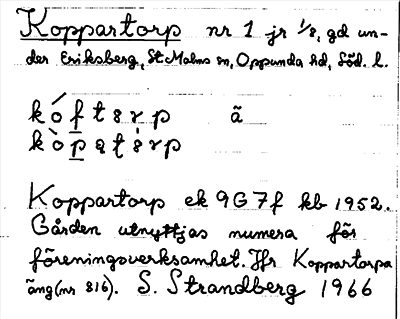 Koppartorp nr 1 jr 1/8, gd un-
der Eriksberg, St Malms sn, Oppunda hd, Söd. l.
Koppartorp ek 9G7f kb 1952.
Gården utnyttjas numera för
föreningsverksamhet. Jfr Koppartorpa
äng (nr 816). S. Strandberg 1966